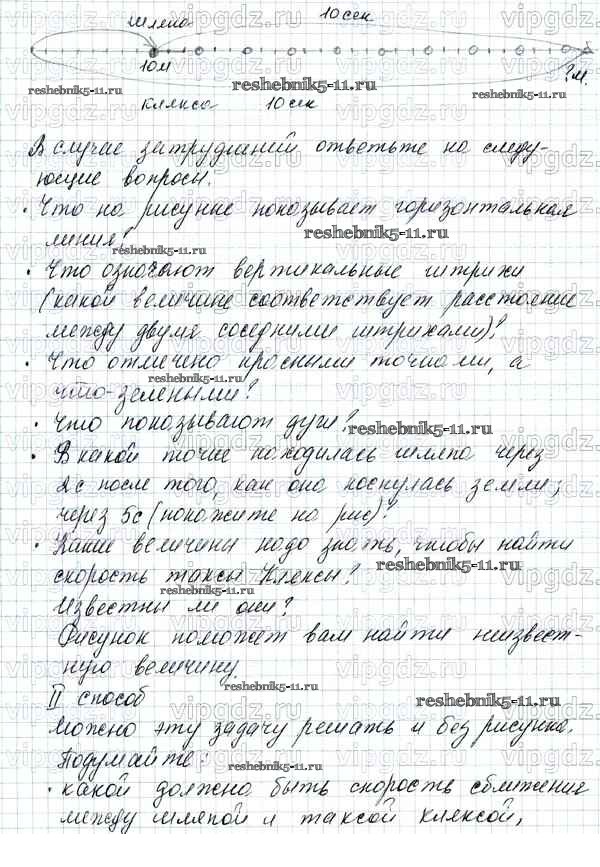 шляпа 10 сек
10 м ? м.
reshebnik5-11.ru reshebnik5-11.ru
клякса 10 сек
В случае затруднений ответьте на следу-
ющие вопросы.
· Что на рисунке показывает горизонтальная
линия?
reshebnik5-11.ru
· Что означают вертикальные штрихи
(какой величине соответствует расстояние
между двумя соседними штрихами)?
· Что отмечено красными точками, а
reshebnik5-11.ru
что-зелеными?
· Что показывают дуги?
reshebnik5-11.ru
· В какой точке находилась шляпа через
2с после того, как она коснулась земли;
через 5с (покажите на рис)?
· Какие величины надо знать, чтобы найти
скорость таксы Кляксы?
reshebnik5-11.ru
Известны ли они?
reshebnik5-11.ru
Рисунок поможет вам найти неизвест-
ную величину.
reshebnik5-11.ru
II способ
reshebnik5-11.ru
Можно эту задачу решать и без рисунка.
Подумайте:
reshebnik5-11.ru
· какой должна быть скорость сближения
между шляпой и таксой кляксой,